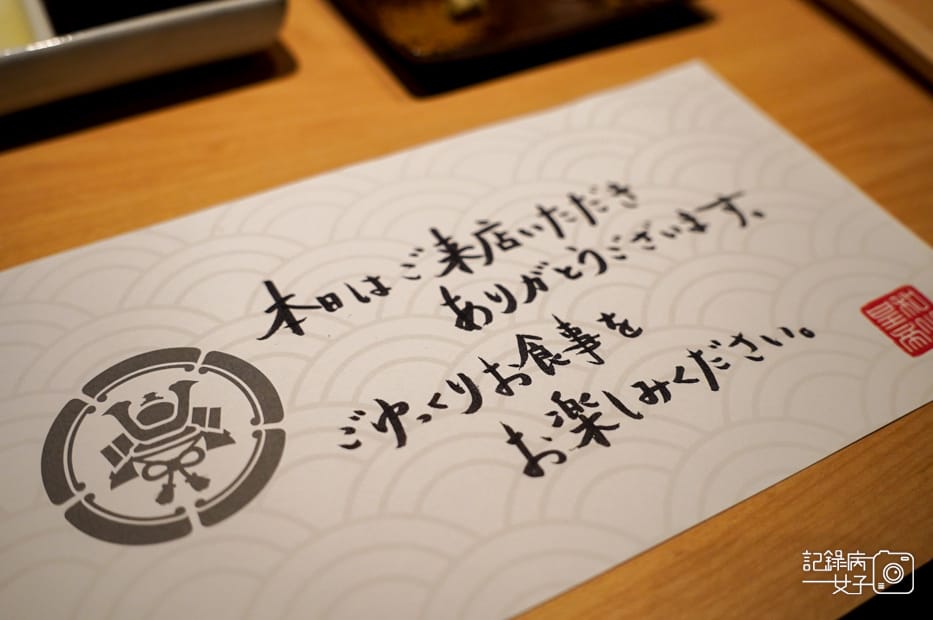 本日はご来店いただき
ありがとうございます、
ごゆっくりお食事を
お楽しみください。
記錄病
女子